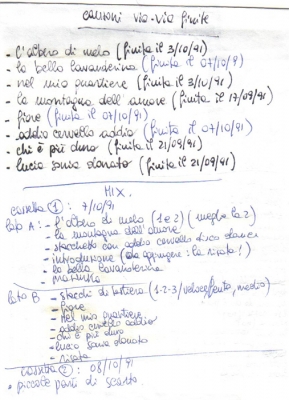 canzoni via-via finite
- l'albero di melo (finita il 3/10/91)
- la bella lavanderina (finita il 07/10/9)
- nel mio quartiere (finita il 3/10/91)
- la montagna dell'amore (finita il 17/09/91)
- fiore (finita il 07/10/91)
- addio cervello addio (finita il 07/10/91)
- chi è più duro (finita il 21/09/91)
- lucio sansa donato (finita il 21/09/91)
MIX.
cassetta (1): 7/10/91
lato A: - l'albero di melo (1 e 2) (meglio la 2)
- la montagna dell'amore
- stacchetto con addio cervello disco
- introduzione (da aggiungere: la risata!)
- la bella lavanderina
lato B - stacchi di tastiera (1-2-3/veloce/lenta, medio)
- fiore
- nel mio quartiere
- addio cervello addio
- chi è più duro
- lucio sansa donato
- risata
cassetta (2): 08/10/91
• piccole parti di scarto.